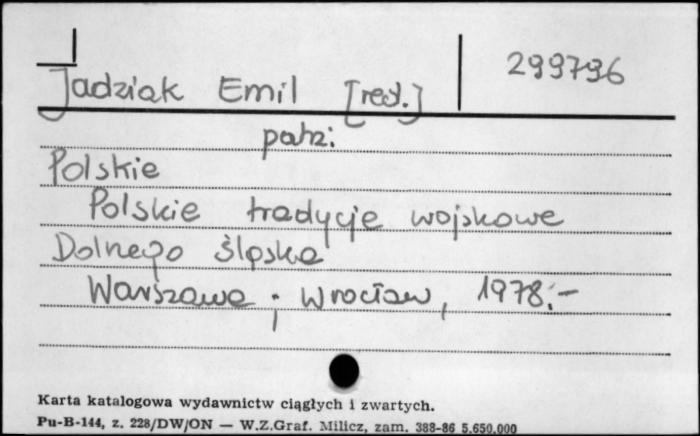 Jadziak Emil [red.] 299796
patrz:
Polskie
Polskie tradycje wojskowe
Dolnego Śląska
Warszawa ; Wrocław, 1978.-
Karta katalogowa wydawnictw ciągłych i zwartych.
Pu-B-144, z. 228/DW/ON — W.Z.Graf. Milicz, zam. 388-86 5.650.000